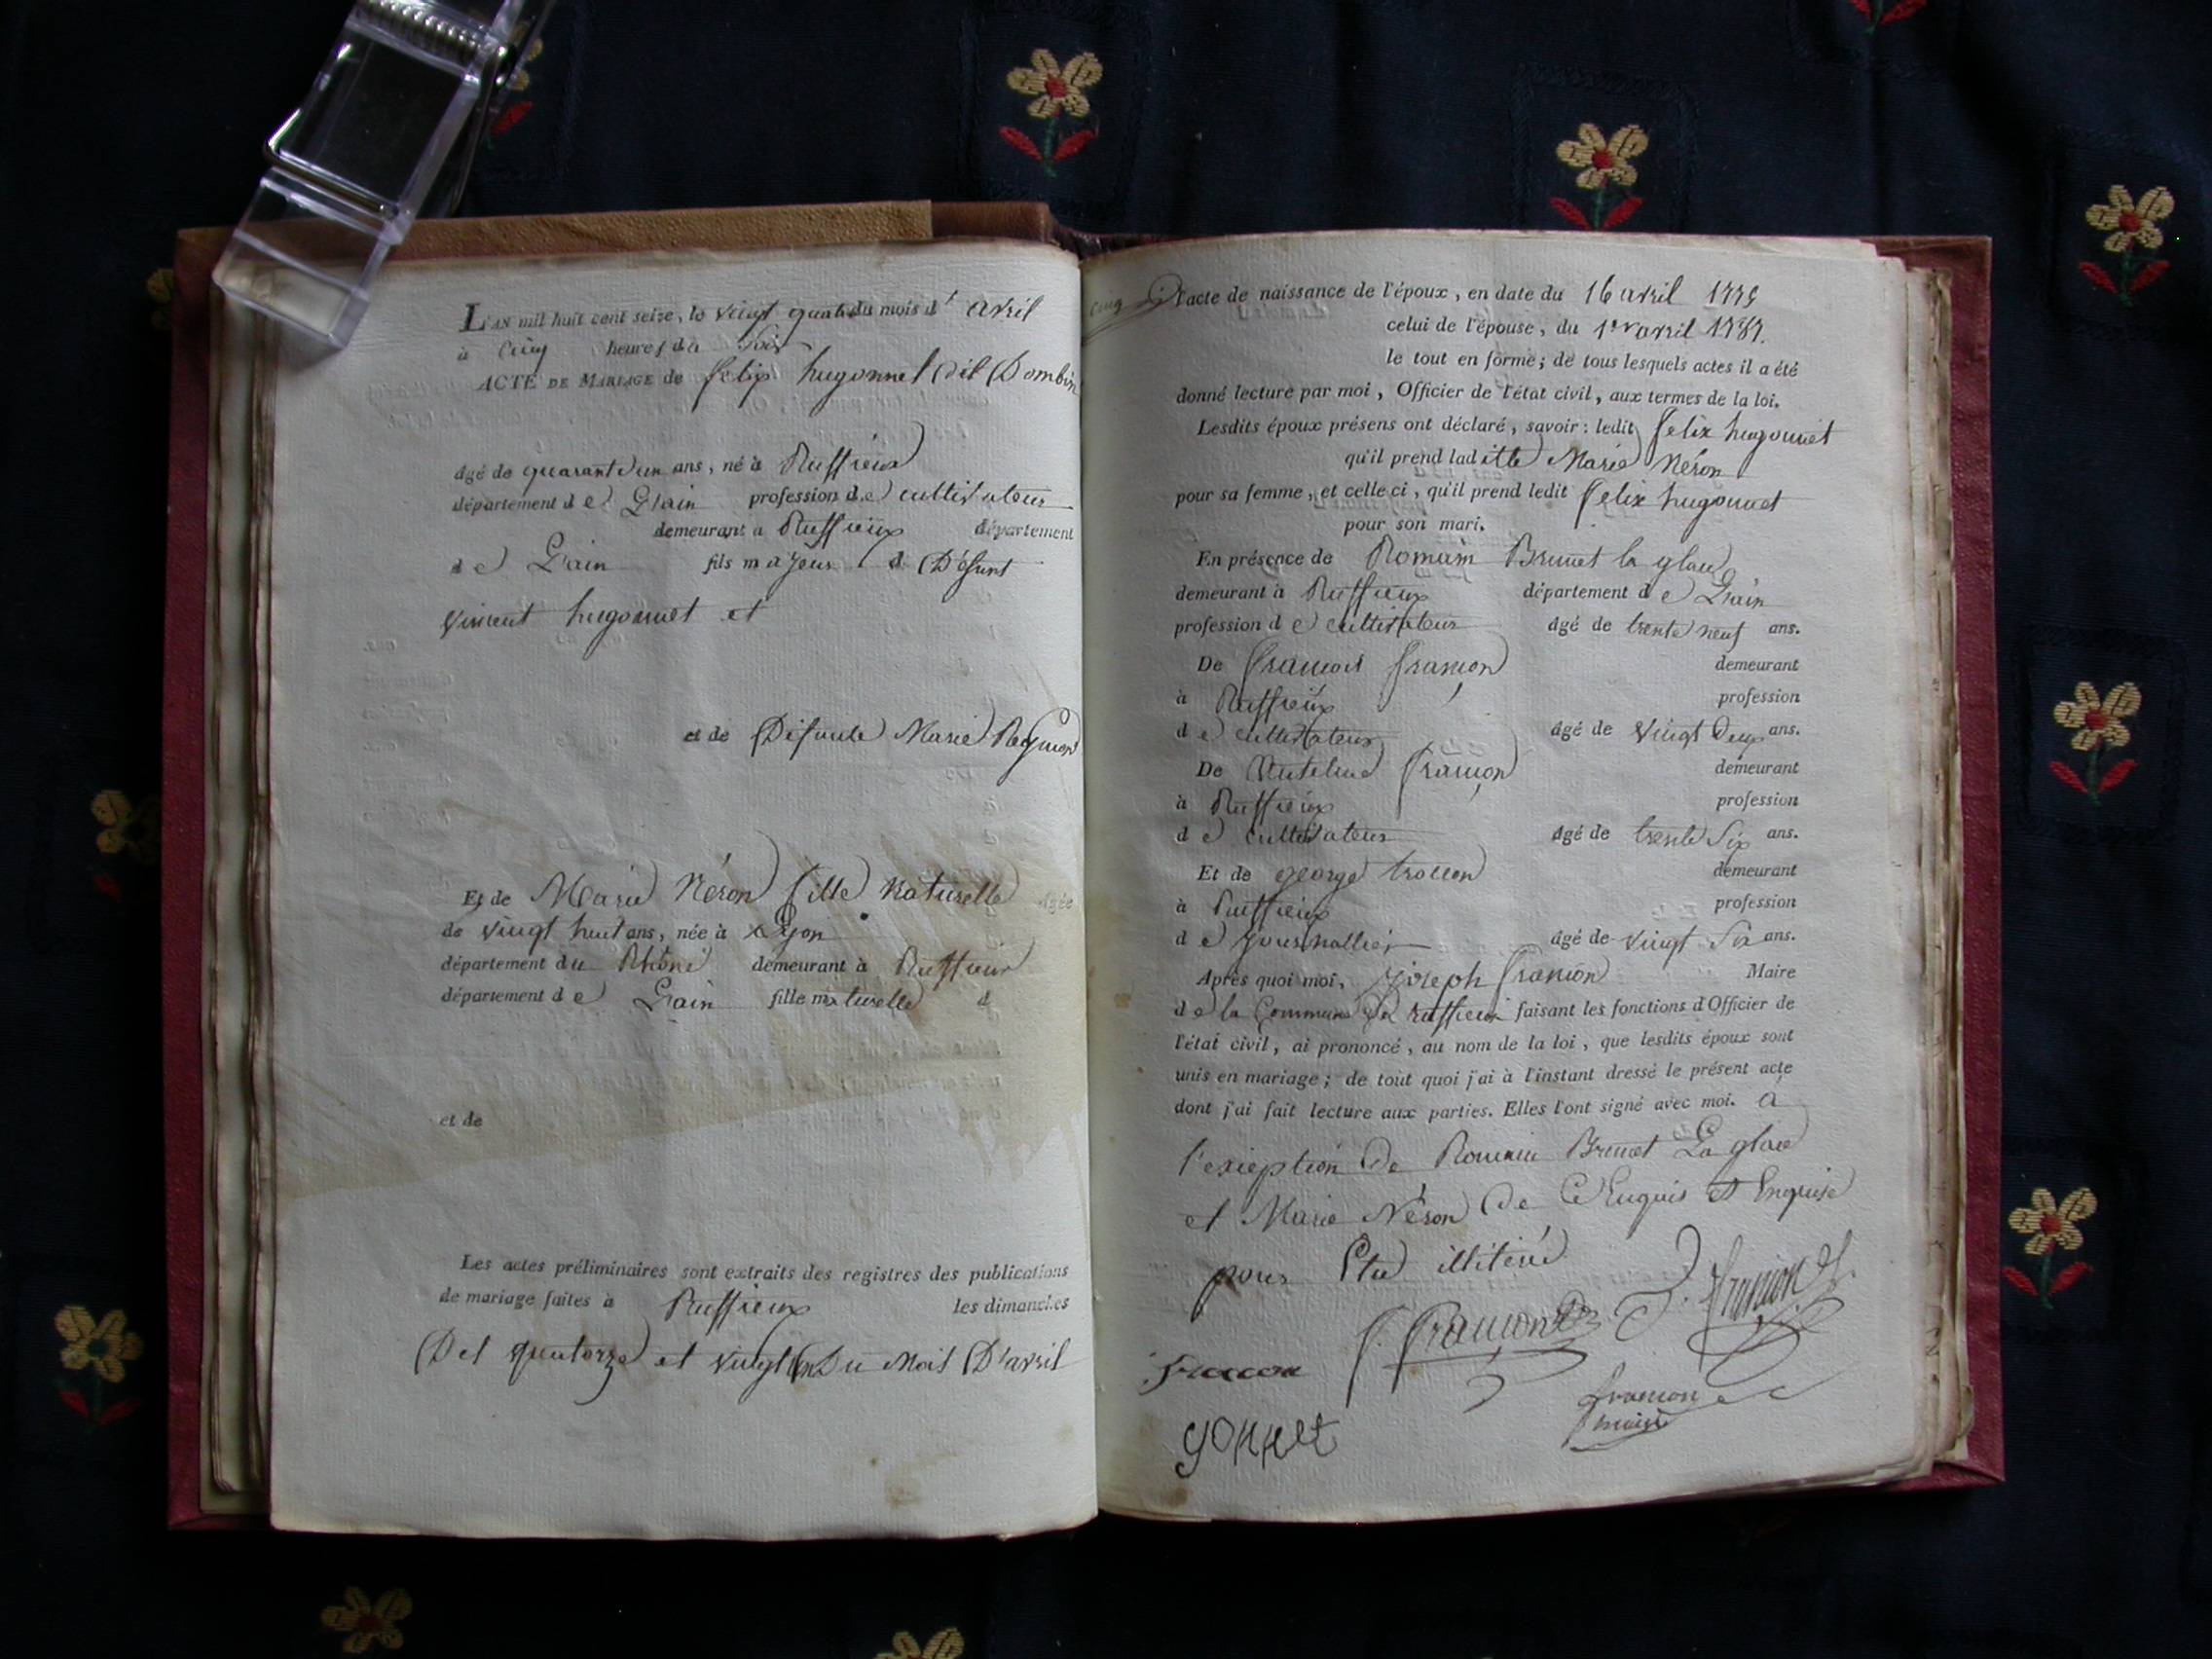 L'AN mil huit cent seize, le vingt quatre du mois d'avril
à Cinq heures du Soir
ACTE DE MARIAGE de felix hugonnet dit Dombin
âgé de quarant'un ans, né à Ruffieux
département de L'ain profession de cultivateur
demeurant à Ruffieux département
de L'ain fils majeur de Défunt
vincent hugonnet et
et de Défunte Marie
Et de Marie Néron fille naturelle âgée
de vingt huit ans, née à Lyon
département du Rhône demeurant à Ruffieux
département de L'ain fille naturelle d
et de
Les actes préliminaires sont extraits des registres des publications
de mariage faites à Ruffieux les dimanches
Des quatorze et vingt un Du Mois D'avril
cinq L'acte de naissance de l'époux, en date du 16 avril 1775
celui de l'épouse, du 1er avril 1787.
le tout en forme; de tous lesquels actes il a été
donné lecture par moi, Officier de l'état civil, aux termes de la loi.
Lesdits époux présens ont déclaré, savoir: ledit felix hugonnet
qu'il prend ladite Marie Néron
pour sa femme, et celle ci, qu'il prend ledit felix hugonnet
pour son mari.
En présence de Romain Brunet la glace
demeurant à Ruffieux département de L'ain
profession de cultivateur âgé de trente neuf ans.
De françois françon demeurant
à Ruffieux profession
de cultivateur âgé de vingt Deux ans.
De Antelme françon demeurant
à Ruffieux profession
de cultivateur âgé de trente Six ans.
Et de george demeurant
à Ruffieux profession
de journallier âgé de vingt Six ans.
Après quoi moi, joseph françon Maire
de la Commune De ruffieux faisant les fonctions d'Officier de
l'état civil, ai prononcé, au nom de la loi, que lesdits époux sont
unis en mariage; de tout quoi j'ai à l'instant dressé le présent acte
dont j'ai fait lecture aux parties. Elles l'ont signé avec moi. a
l'exception de Romain Brunet La glace
et Marie Néron De Ce Enquis et Enquise
pour Etre illiteré
J. françon
f. françon
francon
francon
maire
gonnet